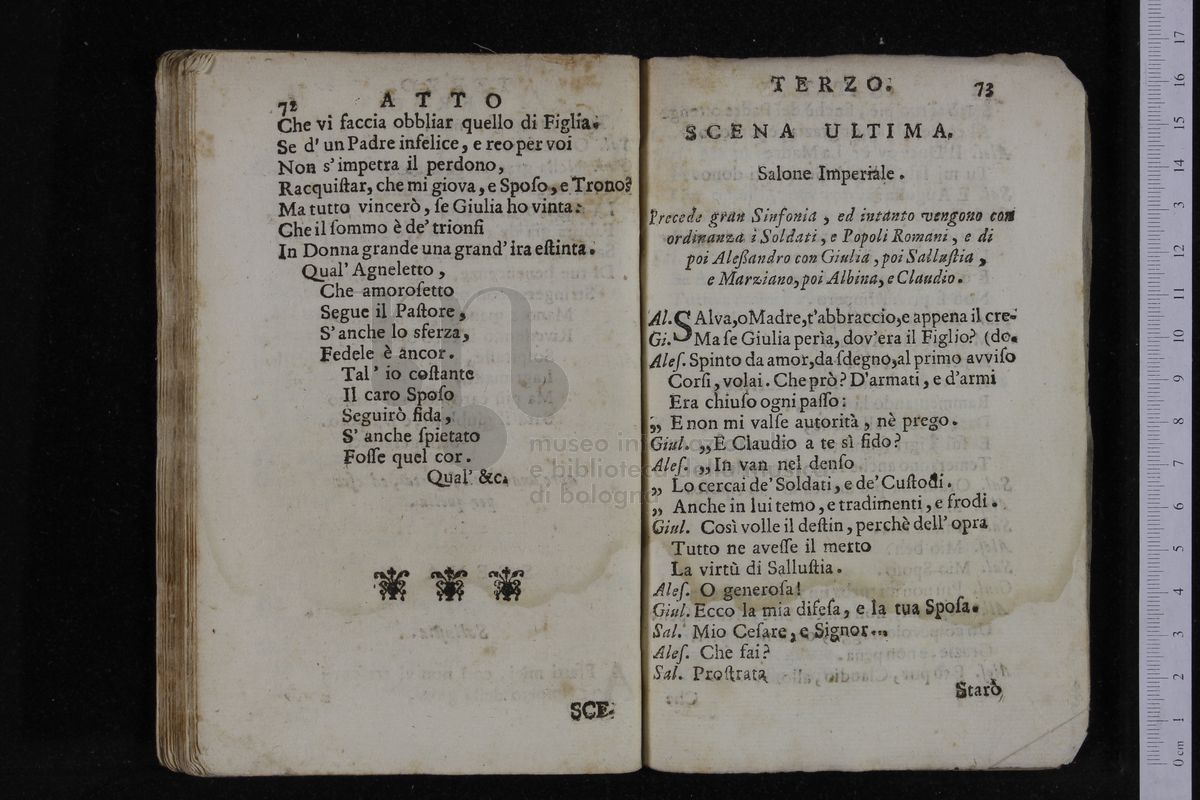 72 ATTO
Che vi faccia obbliar quello di Figlia.
Se d' un Padre infelice, e reo per voi
Non s'impetra il perdono,
Racquiſtar, che mi giova, e Spoſo, e Trono?
Ma tutto vincerò, ſe Giulia ho vinta:
Che il ſommo è de' trionfi
In Donna grande una grand' ira eſtinta.
Qual' Agneletto,
Che amoroſetto
Segue il Paſtore,
S'anche lo sferza,
Fedele è ancor.
Tal' io coſtante
Il caro Spoſo
Seguirò fida,
S' anche ſpietato
Foſſe quel cor.
Qual' &c.
SCE.
TERZO. 73
SCENA ULTIMA.
Salone Imperiale.
Precede gran Sinfonia, ed intanto vengono con
ordinanza i Soldati, e Popoli Romani, e di
poi Aleſſandro con Giulia, poi Salluſtia,
e Marziano, poi Albina, e Claudio.
Al. SAlva, o Madre, t'abbraccio, e appena il cre-
Gi. Ma ſe Giulia perìa, dov'era il Figlio? (do.
Aleſ. Spinto da amor, da ſdegno, al primo avviſo
Corſi, volai. Che prò? D'armati, e d'armi
Era chiuſo ogni paſſo:
„ E non mi valſe autorità, nè prego.
Giul. „E Claudio a te sì fido?
Aleſ. „In van nel denſo
„ Lo cercai de' Soldati, e de' Cuſtodi.
„ Anche in lui temo, e tradimenti, e frodi.
Giul. Così volle il deſtin, perchè dell' opra
Tutto ne aveſſe il merto
La virtù di Salluſtia.
Aleſ. O generoſa!
Giul. Ecco la mia difeſa, e la tua Spoſa.
Sal. Mio Ceſare, e Signor...
Aleſ. Che fai?
Sal. Proſtrata
Starò
museo internazionale
e biblioteca della musica
di bologna
0 cm 1 2 3 4 5 6 7 8 9 10 11 12 13 14 15 16 17